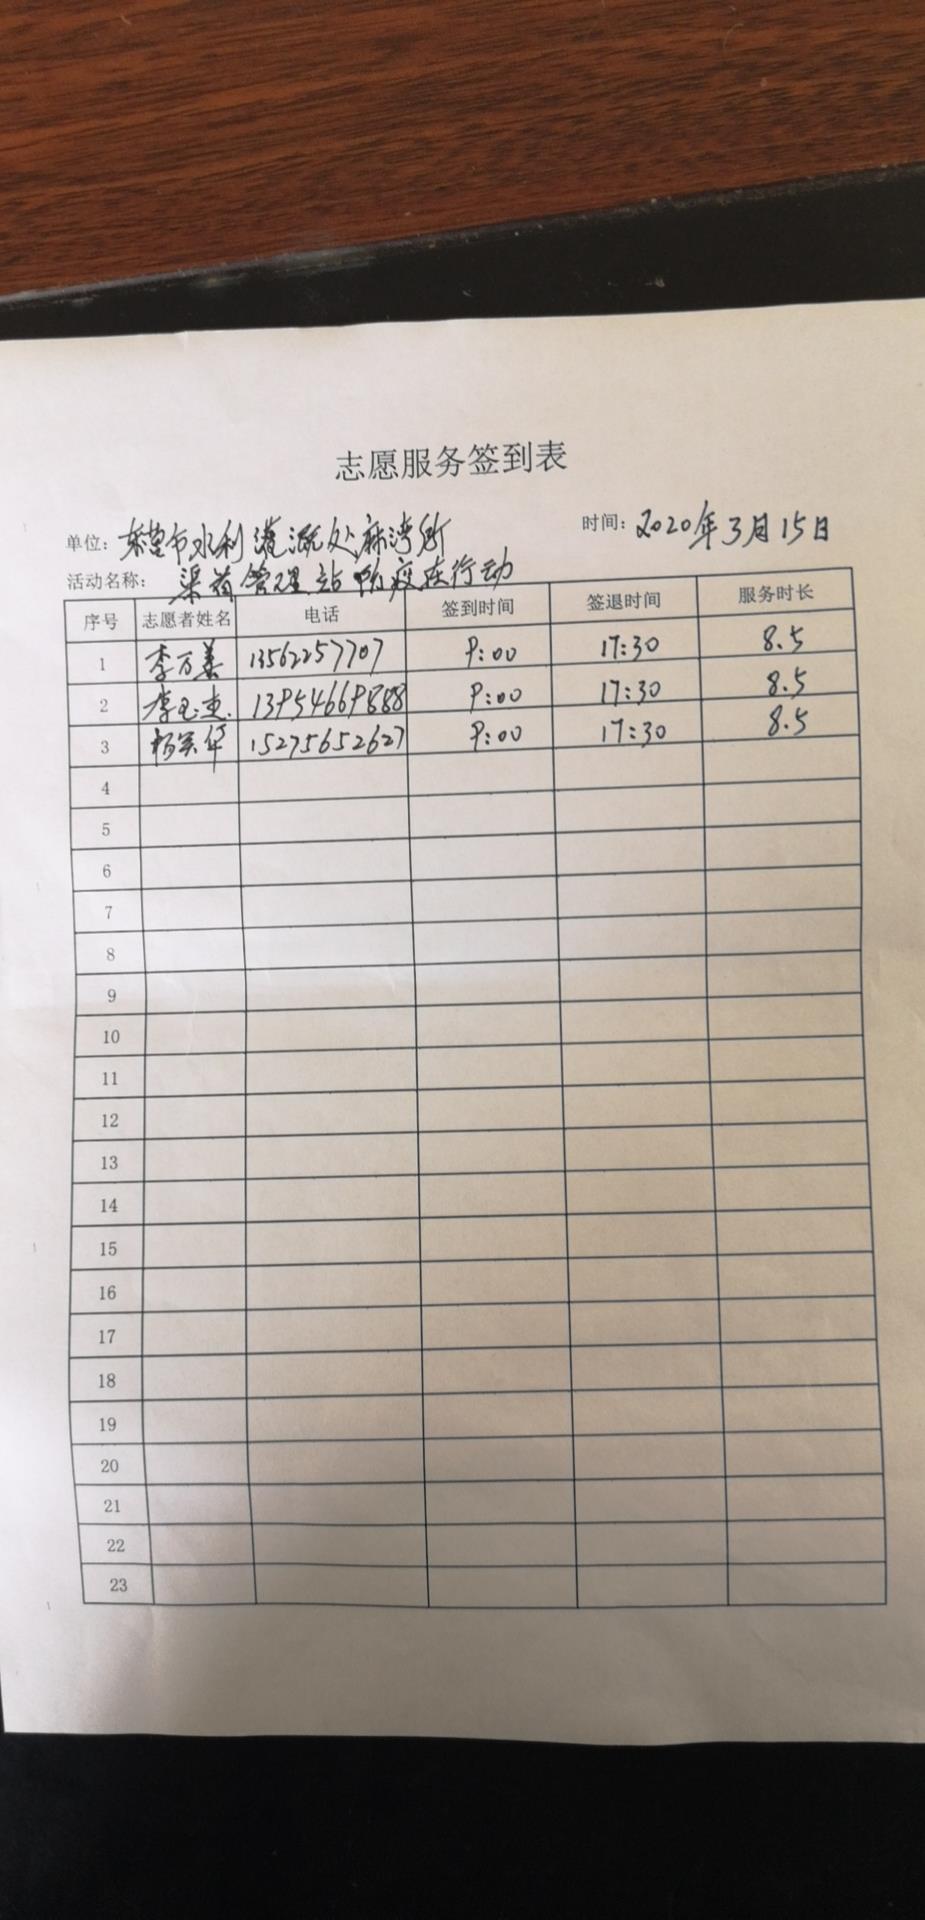 志愿服务签到表
单位：东营市水利灌溉处麻湾所 时间：2020年3月15日
活动名称：渠首管理站防疫在行动
序号 志愿者姓名 电话 签到时间 签退时间 服务时长
1 李万美 13562257707 9:00 17:30 8.5
2 李玉杰 13954669888 9:00 17:30 8.5
3 杨美华 15275652627 9:00 17:30 8.5
4
5
6
7
8
9
10
11
12
13
14
15
16
17
18
19
20
21
22
23